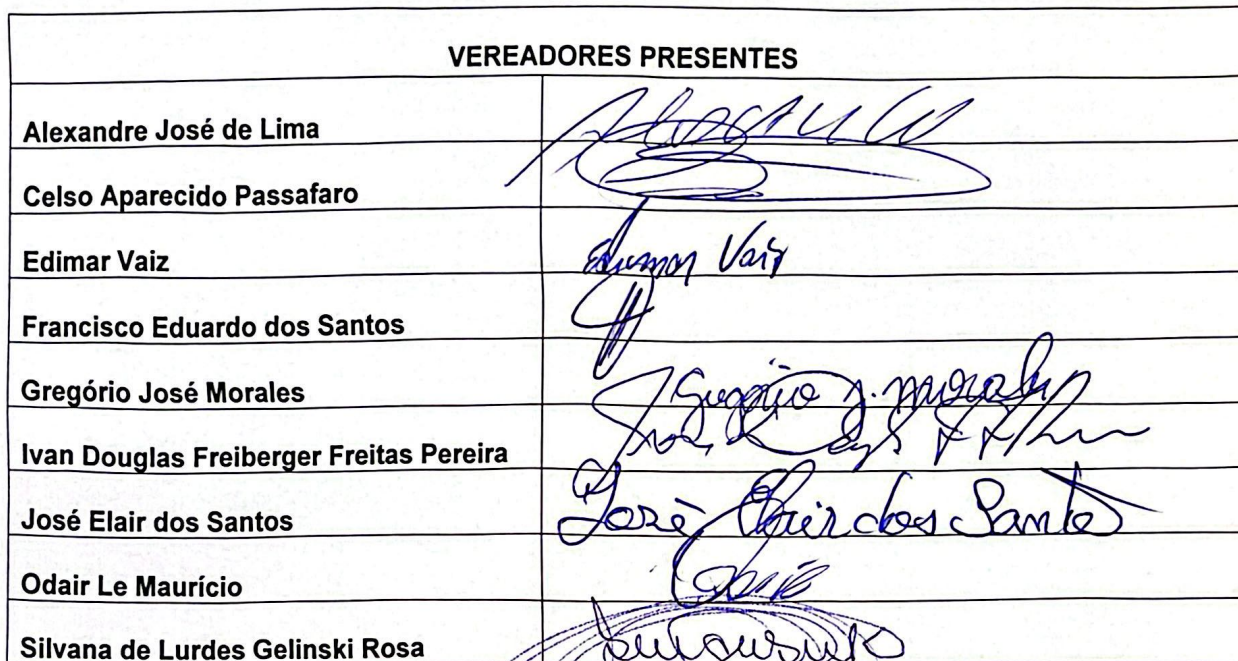 VEREADORES PRESENTES
Alexandre José de Lima
Celso Aparecido Passafaro
Edimar Vaiz Edimar Vaiz
Francisco Eduardo dos Santos
Gregório José Morales Gregório J. Morales
Ivan Douglas Freiberger Freitas Pereira
José Elair dos Santos José Elair dos Santos
Odair Le Maurício
Silvana de Lurdes Gelinski Rosa